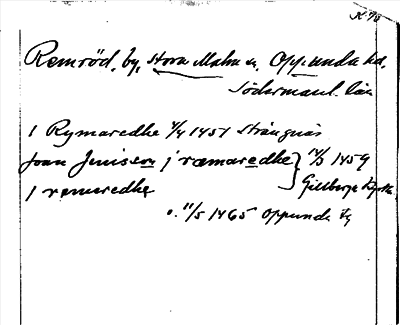 Remröd, by, Stora Malm sn, Oppunda hd,
Södermanl. län
I Rymaredhe 4/4 1451 Strängnäs
Joan Jenisson j ræmaredhe } 14/3 1459
j rømeredhe Gillberga
o. 11/5 1465 Oppunda